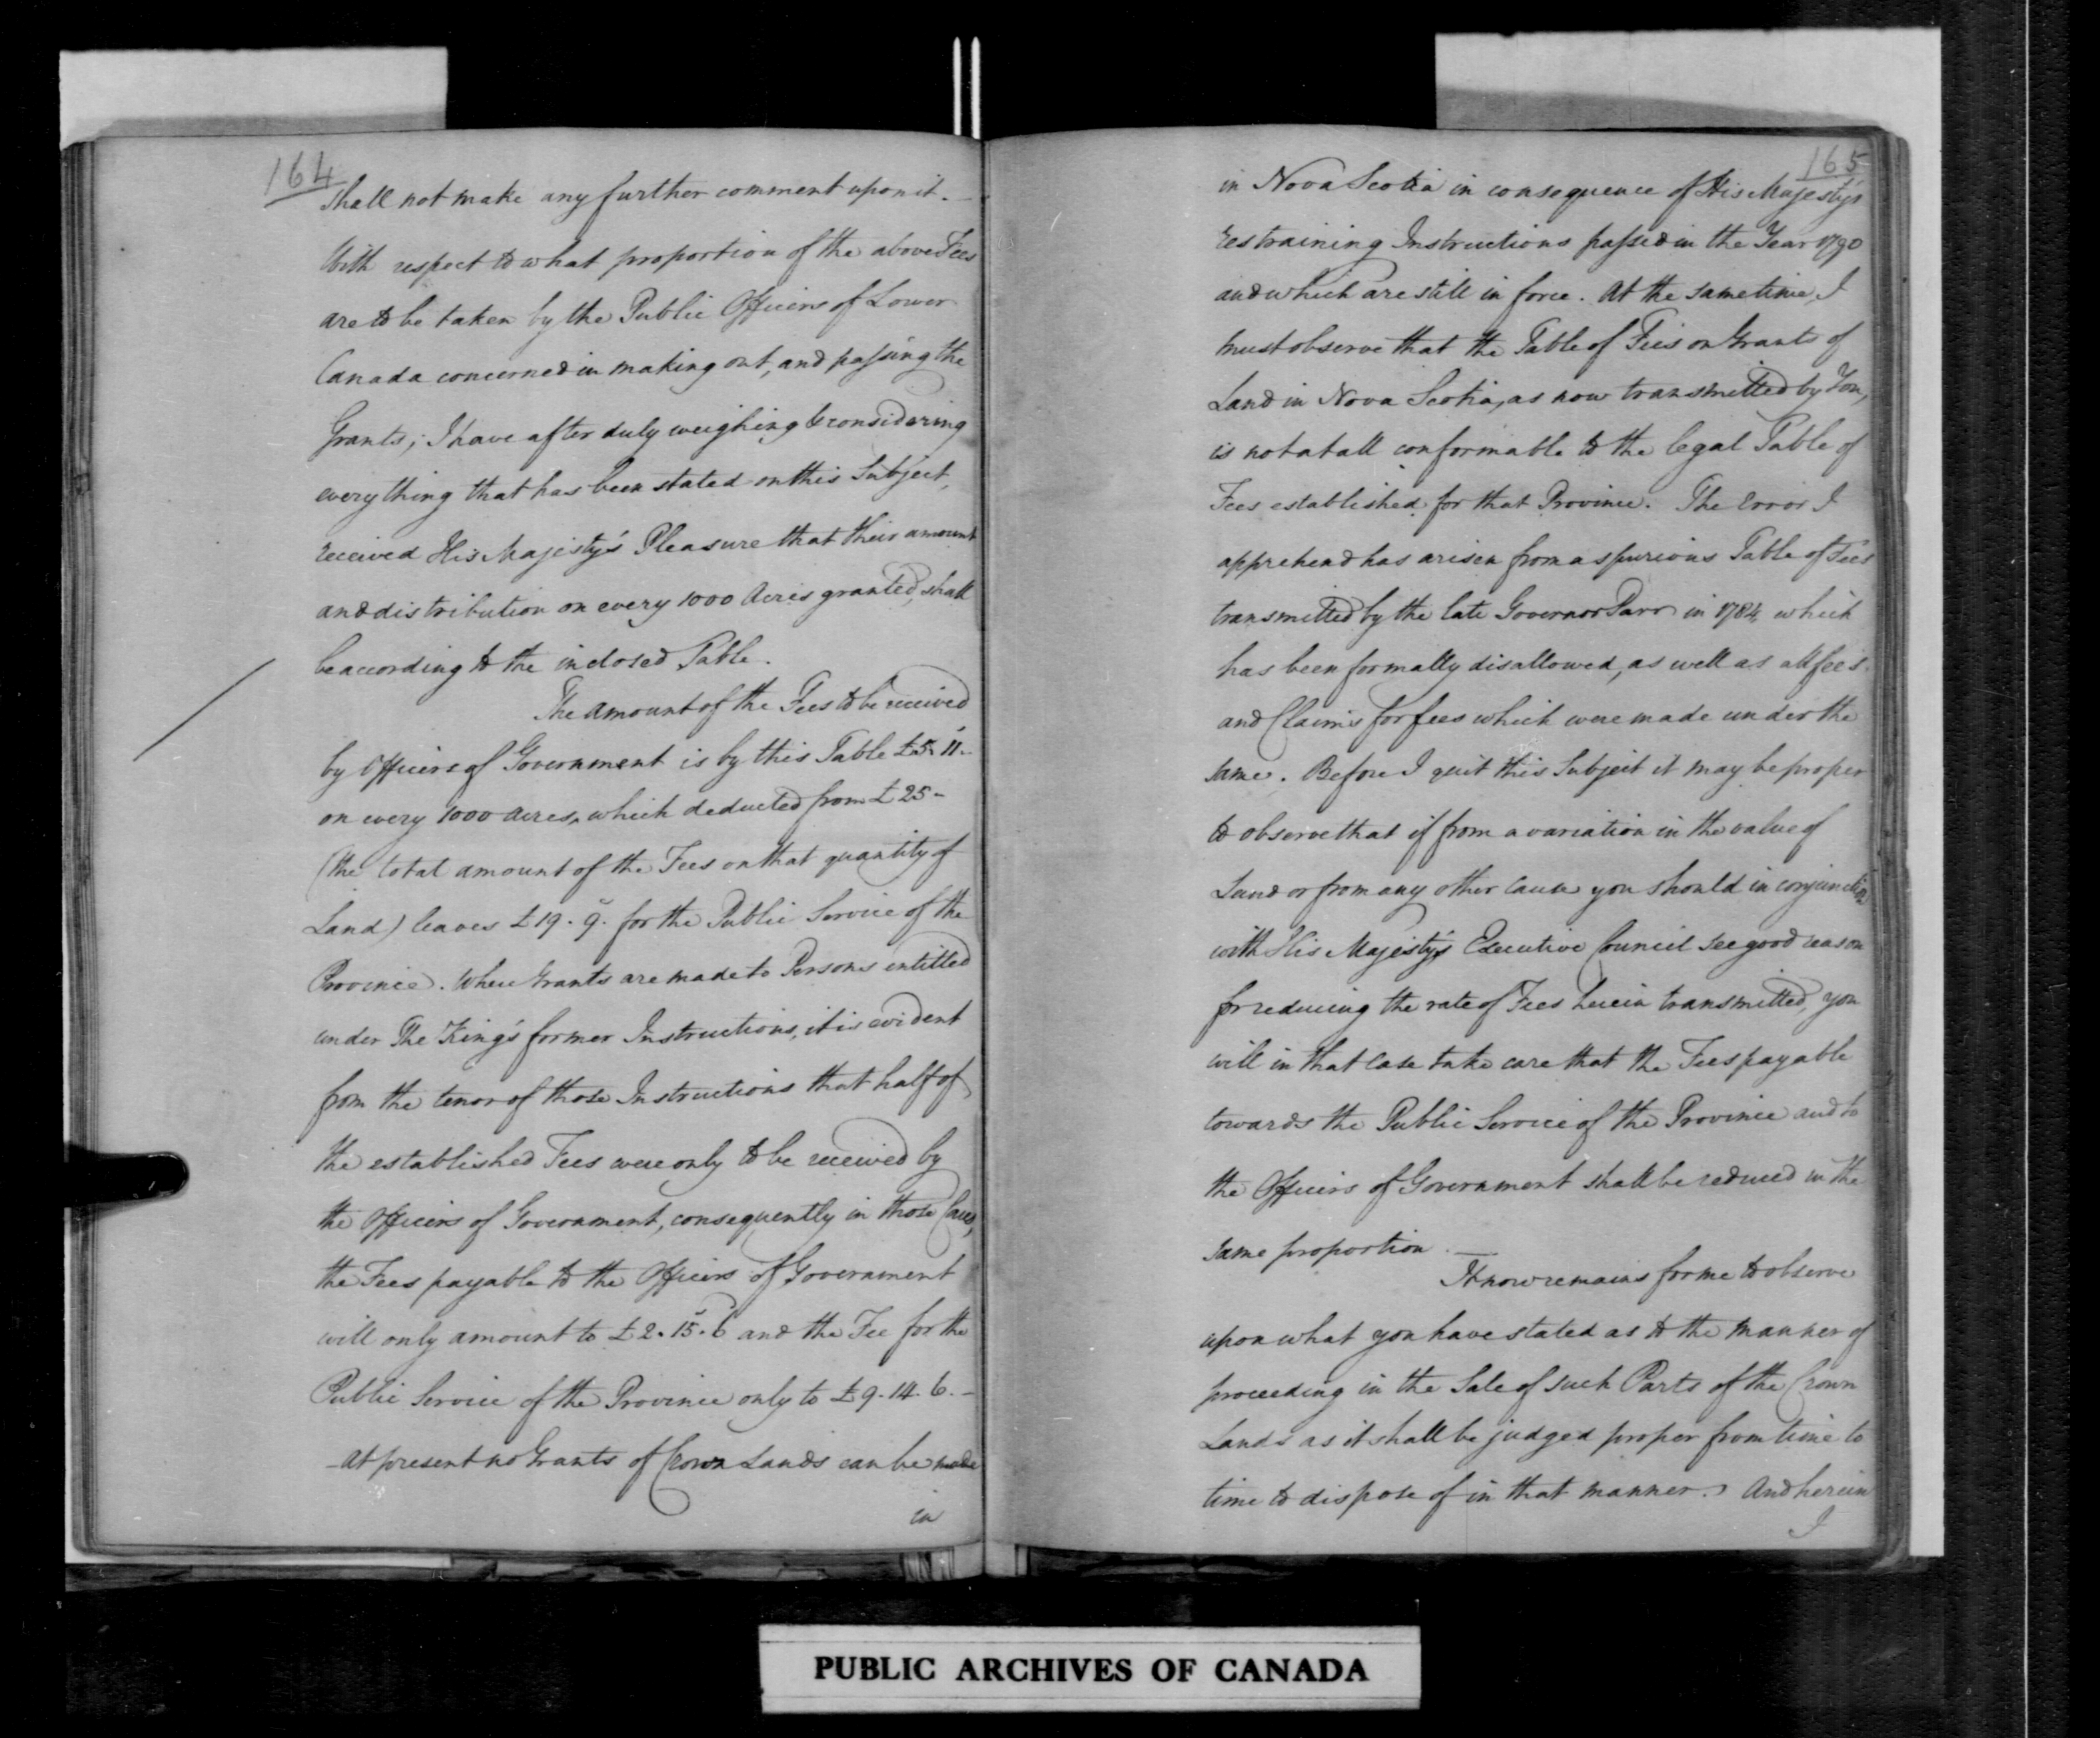 164
shall not make any further comment upon it. —
With respect to what proportion of the above Fees
are to be taken by the Public Officers of Lower
Canada concerned in making out, and passing the
Grants; I have after duly weighing & considering
every thing that has been stated on this Subject,
received His Majesty's Pleasure that their amount
and distribution on every 1000 Acres granted, shall
be according to the inclosed Table.
The amount of the Fees to be received
by Officers of Government is by this Table £5. 11. -
on every 1000 acres, which deducted from £25 -
(the total amount of the Fees on that quantity of
Land) leaves £19. 9. for the Public Service of the
Province. When Grants are made to Persons intitled
under The King's former Instructions, it is evident
from the tenor of those Instructions that half of
the established Fees were only to be received by
the Officers of Government, consequently in those Cases,
the Fees payable to the Officers of Government
will only amount to £2. 15. 6 and the Fee for the
Public Service of the Province only to £9. 14. 6. —
— At present no Grants of Crown Lands can be made
in
165
in Nova Scotia in consequence of His Majesty's
restraining Instructions passed in the Year 1790
and which are still in force. At the same time, I
must observe that the Table of Fees on Grants of
Land in Nova Scotia, as now transmitted by You,
is not at all conformable to the legal Table of
Fees established for that Province. The Error I
apprehend has arisen from a spurious Table of Fees
transmitted by the late Governor Parr in 1784, which
has been formally disallowed, as well as all fees
and Claims for fees which were made under the
same. Before I quit this Subject it may be proper
to observe that if from a variation in the value of
Land or from any other Cause you should in conjunction
with His Majesty's Executive Council see good reason
for reducing the rate of Fees herein transmitted, you
will in that case take care that the Fees payable
towards the Public Service of the Province and to
the Officers of Government shall be reduced in the
same proportion. —
It now remains for me to observe
upon what you have stated as to the manner of
proceeding in the Sale of such Parts of the Crown
Lands as it shall be judged proper from time to
time to dispose of in that manner. And herein
I
PUBLIC ARCHIVES OF CANADA